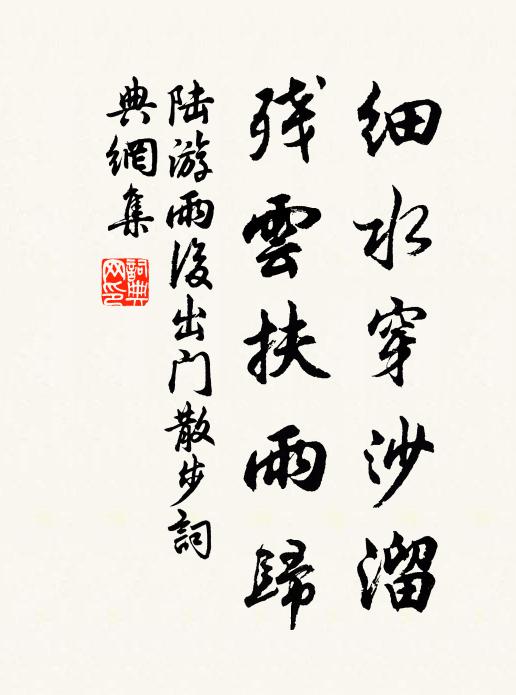 细水穿沙溜
残雲扶雨歸
陆游雨後出门散步詞
典網集
詞典
网印